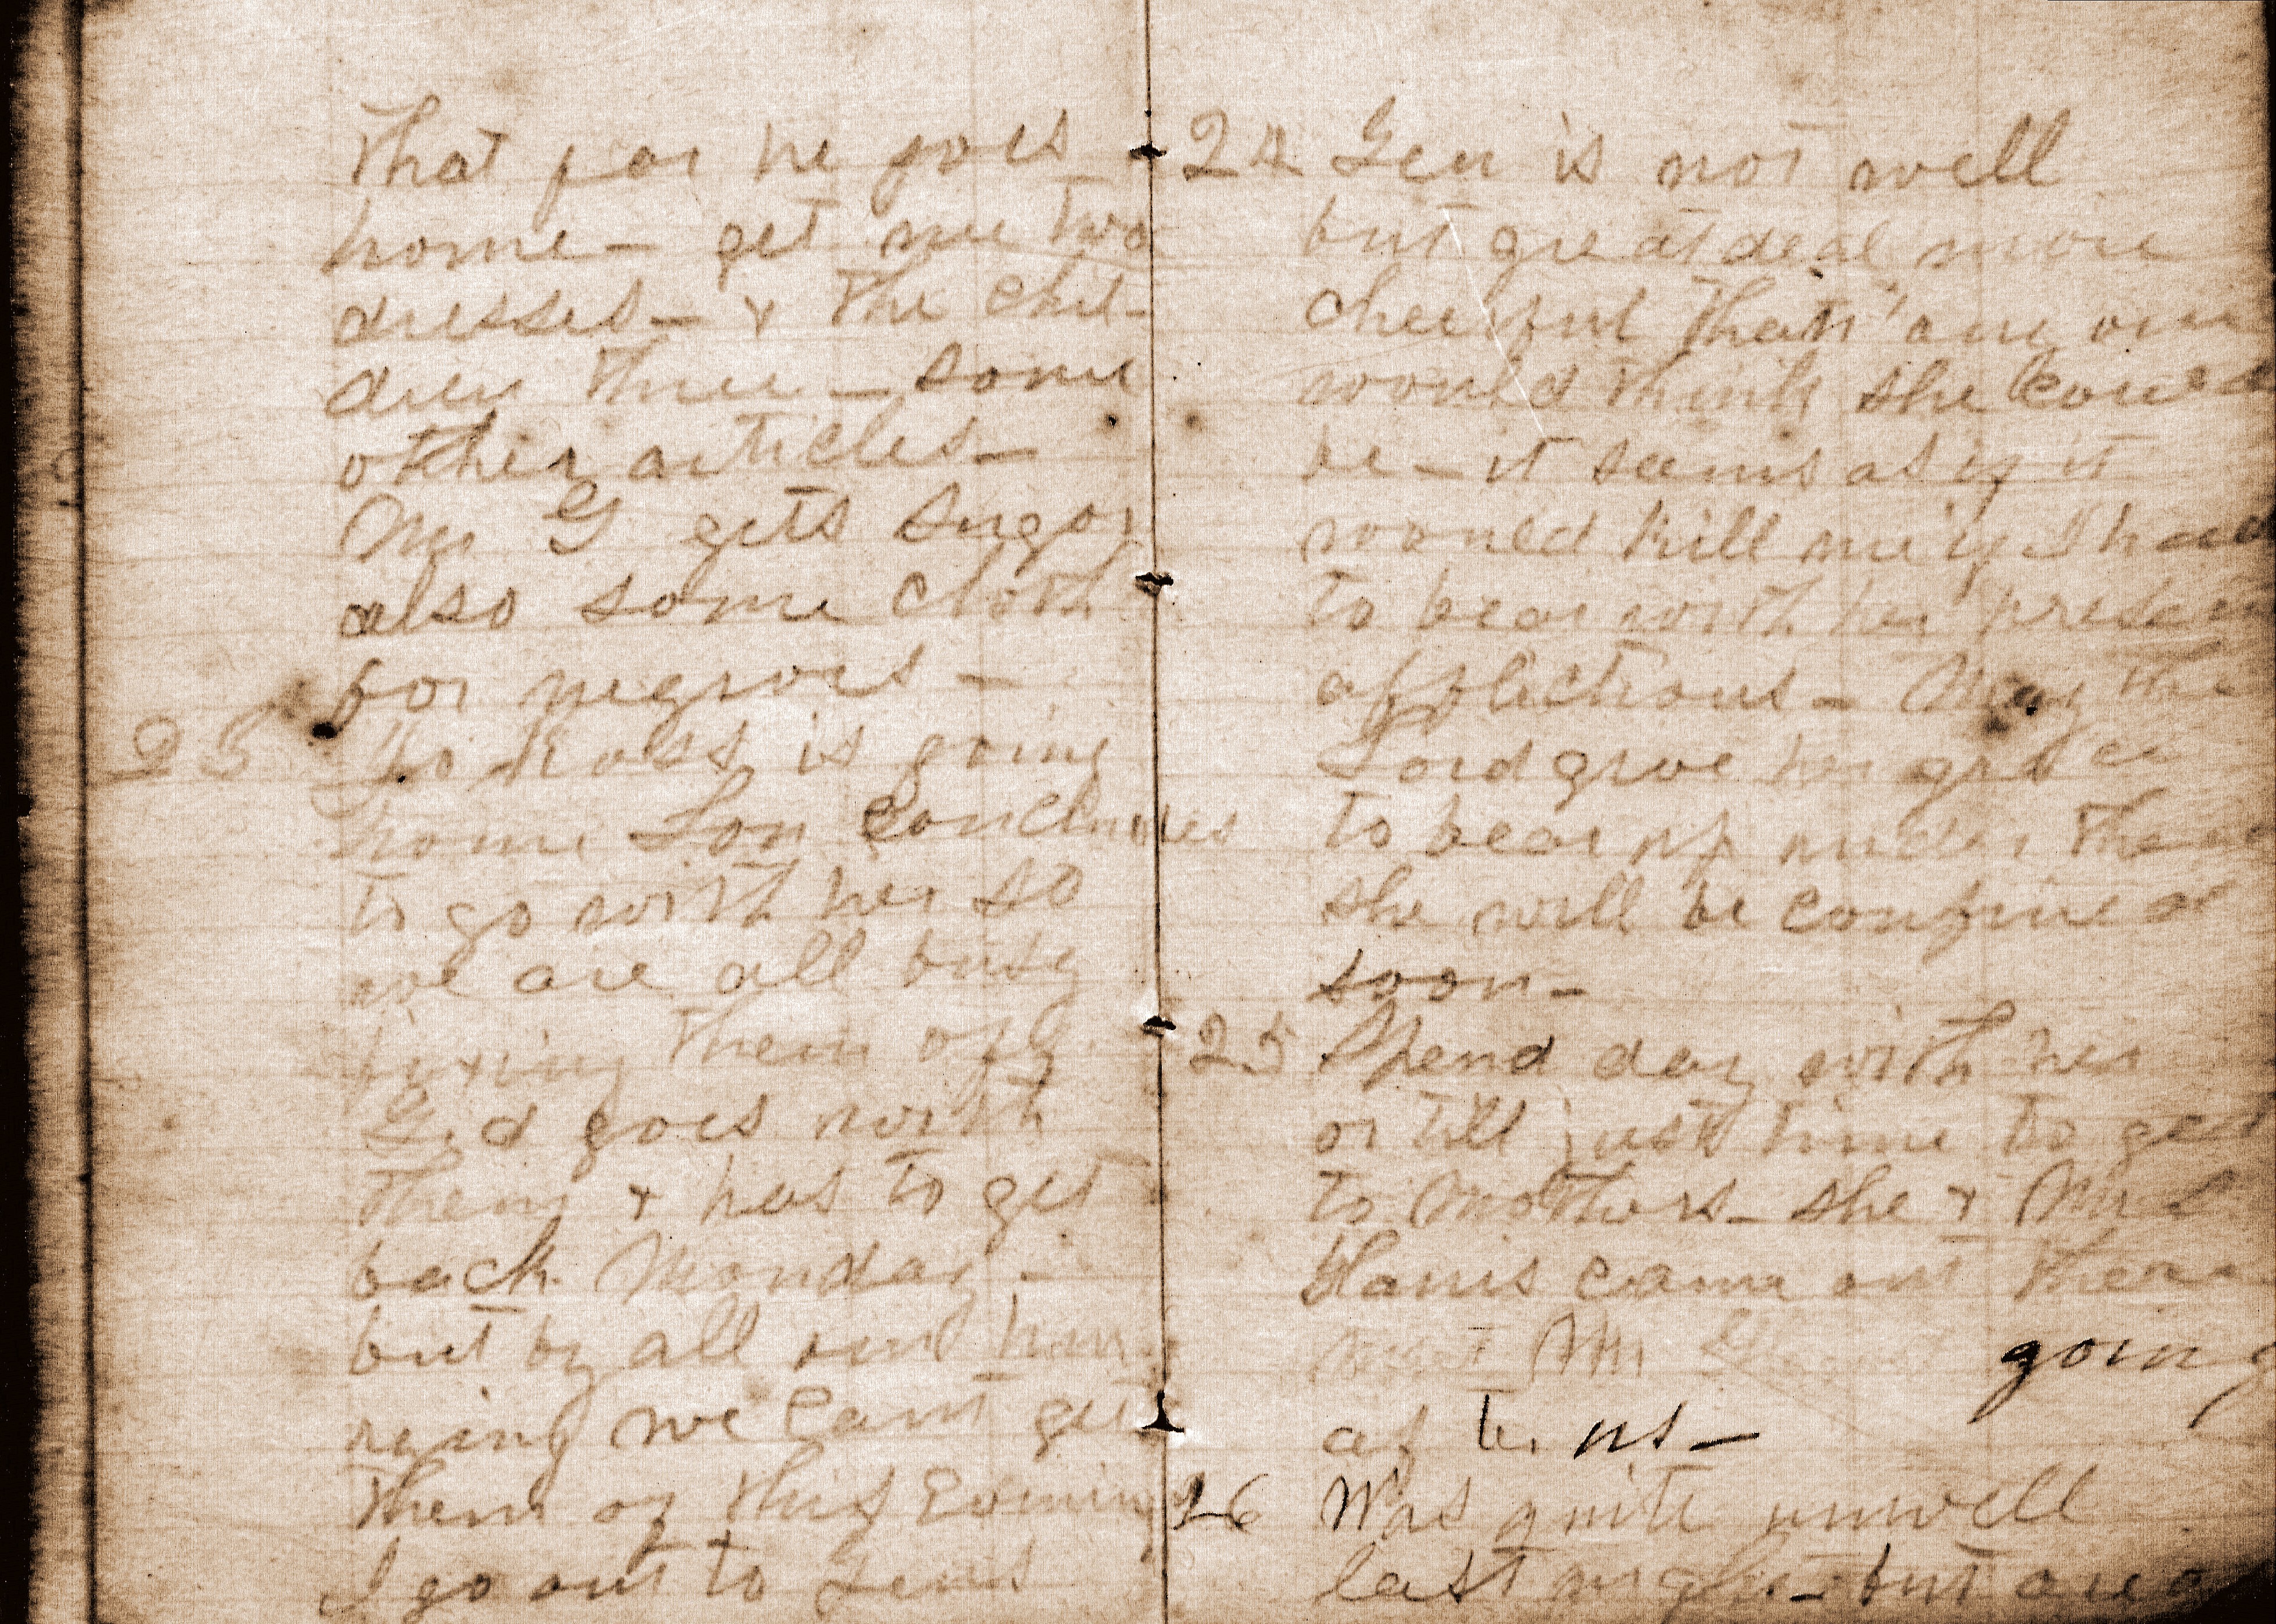 that far he goes
home – get me two
dresses – & the chil-
dren three – some
other articles –
Mr G gets sugar
also some cloth
for negroes –
23 Ross is going
home Lou concludes
to go with her so
we are all busy
fixing them off
Gid goes with
them & has to get
back Monday –
but by all our hur-
rying we cant get
them of this Evening
I go out to Gens
24 Gen is not well
but great deal more
cheerful than any one
would think she could
be – it seems as if it
would kill me if I had
to bear with her present
afflictions – May the
Lord give her grace
to bear up under them
she will be confined
soon –
25 Spend day with her
or till just time to get
to Mothers – she & Mrs
Harris came out there
Mr G going
after us –
26 Was quite unwell
last night – but